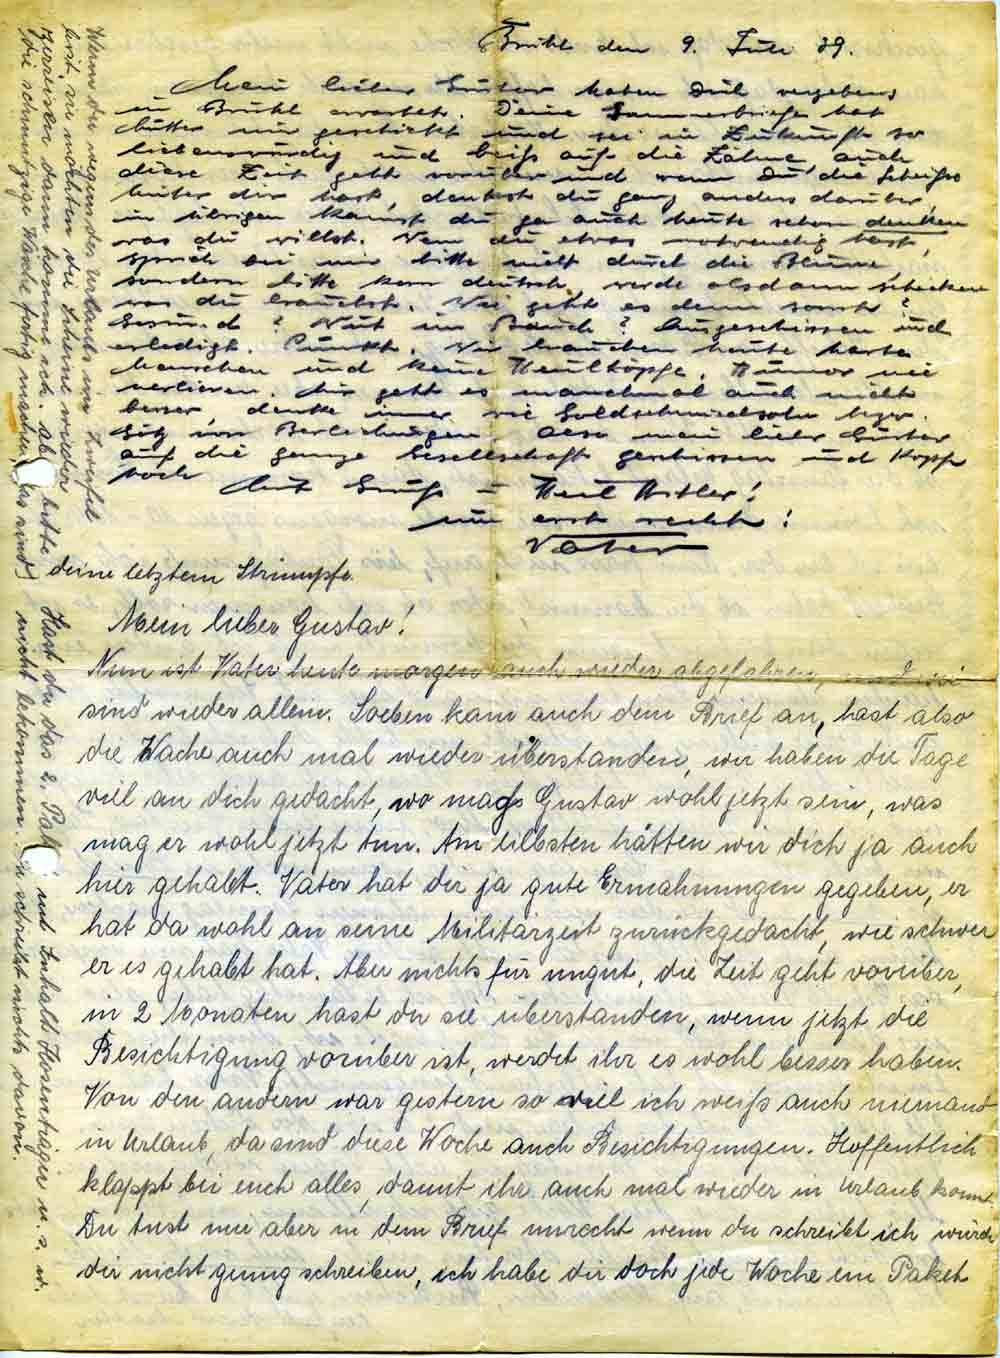 Brühl den 9. Juli 39.
Mein lieber Gustav haben Dich vergebens
in Brühl erwartet. Deine Jammerbriefe hat
Mutter mir geschickt und sei in Zukunft so
liebenswürdig und beiß auf die Zähne, auch
diese Zeit geht vorüber und wenn Du die Scheiße
hinter dir hast, denkst du ganz anders darüber,
im übrigen kannst du ja auch heute schon denken
was du willst. Wenn du etwas notwendig hast,
sprich bei mir bitte nicht durch die Blume,
sondern bitte kurz deutsch, werde alsdann schicken
was du brauchst. Wie geht es denn sonst?
Gesund? Wut im Bauch? Ausgeschissen und
erledigt. Punkt. Wir brauchen heute harte
Menschen und keine Heulköpfe. Humor nie
verlieren. Mir geht es manchmal auch nicht
besser, denke immer wie Goldschmiedsohn bezw.
Götz von Berlichingen. Also mein lieber Gustav
auf die ganze Gesellschaft geschissen und Kopf
hoch
Mit Gruß u Heil Hitler!
nun erst recht!
Vater
deine letztem Strümpfe.
Mein lieber Gustav!
Nun ist Vater heute morgen auch wieder abgefahren, und wir
sind wieder allein. Soeben kam auch dein Brief an, hast also
die Wache auch mal wieder überstanden, wir haben die Tage
viel an dich gedacht, wo mags Gustav wohl jetzt sein, was
mag er wohl jetzt tun. Am libsten hätten wir dich ja auch
hier gehabt. Vater hat dir ja gute Ermahnungen gegeben, er
hat da wohl an seine Militärzeit zurückgedacht, wie schwer
er es gehabt hat. Aber nichts für ungut, die Zeit geht vorüber,
in 2 Monaten hast du sie überstanden, wenn jetzt die
Besichtigung vorüber ist, werdet ihr es wohl besser haben.
Von den andern war gestern so viel ich weiß auch niemand
in Urlaub, da sind diese Woche auch Besichtigungen. Hoffentlich
klappt bei euch alles, damit ihr auch mal wieder in Urlaub kommt
Du tust mir aber in dem Brief unrecht wenn du schreibst ich würde
dir nicht genug schreiben, ich habe dir doch jede Woche ein Paket
Wenn du wegen des Urlaubs im Zweifel
bist, sie möchten die Scheine wieder
zerreisen dann komme ich. bitte
die schmutzige Wäsche fertig machen, (es sind
Hast du das 2. Pak mit Inhalt Hosenträger u. s. w.
nicht bekommen. Du schreibst nichts davon.